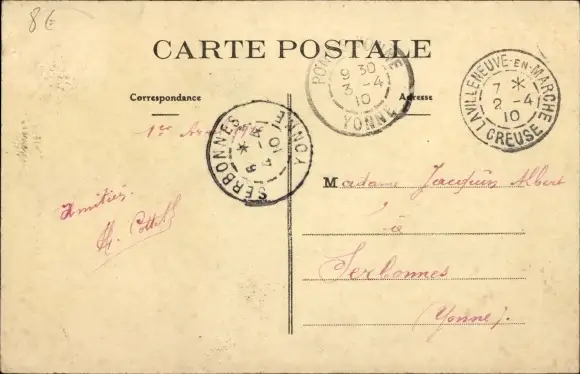 8€
CARTE POSTALE
Correspondance
Adresse
PON
YONNE
9 30
3 -4
10
LAVILLENEUVE-EN-MARCHE
7 *
2 -4
10
CREUSE
SERBONNES
YONNE
6 *
4 -4
10
1er
Amitiés
Madame Jacquin Albert
à
Serbonnes
(Yonne).